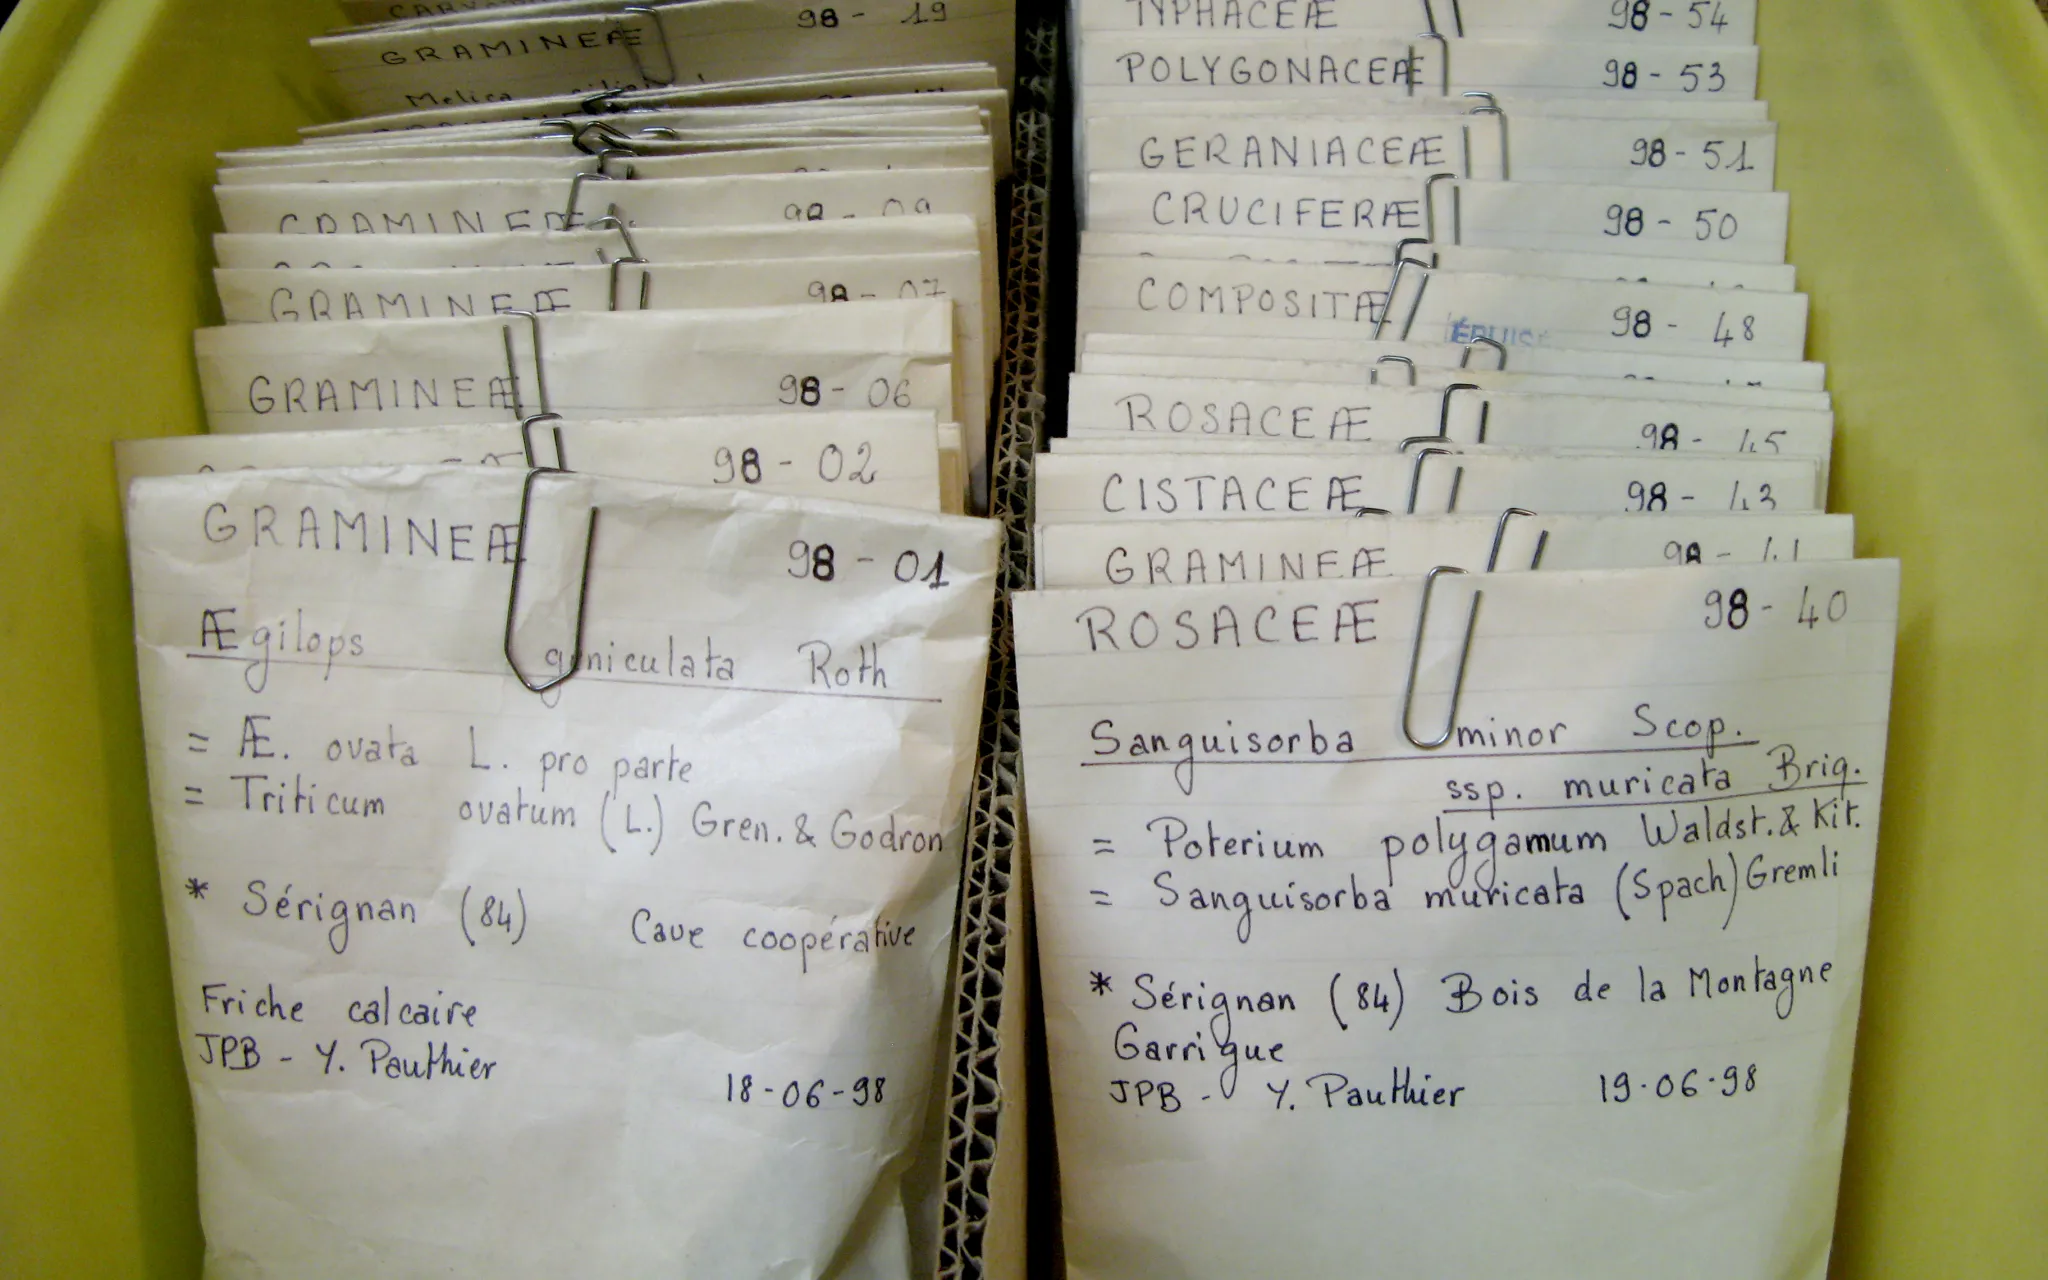 98 - 19
GRAMINEÆ
Melica
GRAMINEÆ 98 - 09
GRAMINEÆ 98 - 07
GRAMINEÆ 98 - 06
98 - 02
GRAMINEÆ 98 - 01
Ægilops geniculata Roth
= Æ. ovata L. pro parte
= Triticum ovatum (L.) Gren. & Godron
* Sérignan (84) Cave coopérative
Friche calcaire
JPB - Y. Pauthier
18-06-98
TYPHACEÆ 98 - 54
POLYGONACEÆ 98 - 53
GERANIACEÆ 98 - 51
CRUCIFERÆ 98 - 50
COMPOSITÆ 98 - 48
ROSACEÆ 98 - 45
CISTACEÆ 98 - 43
GRAMINEÆ 98 - 41
ROSACEÆ 98 - 40
Sanguisorba minor Scop.
ssp. muricata Briq.
= Poterium polygamum Waldst. & Kit.
= Sanguisorba muricata (Spach) Gremli
* Sérignan (84) Bois de la Montagne
Garrigue
JPB - Y. Pauthier 19-06-98